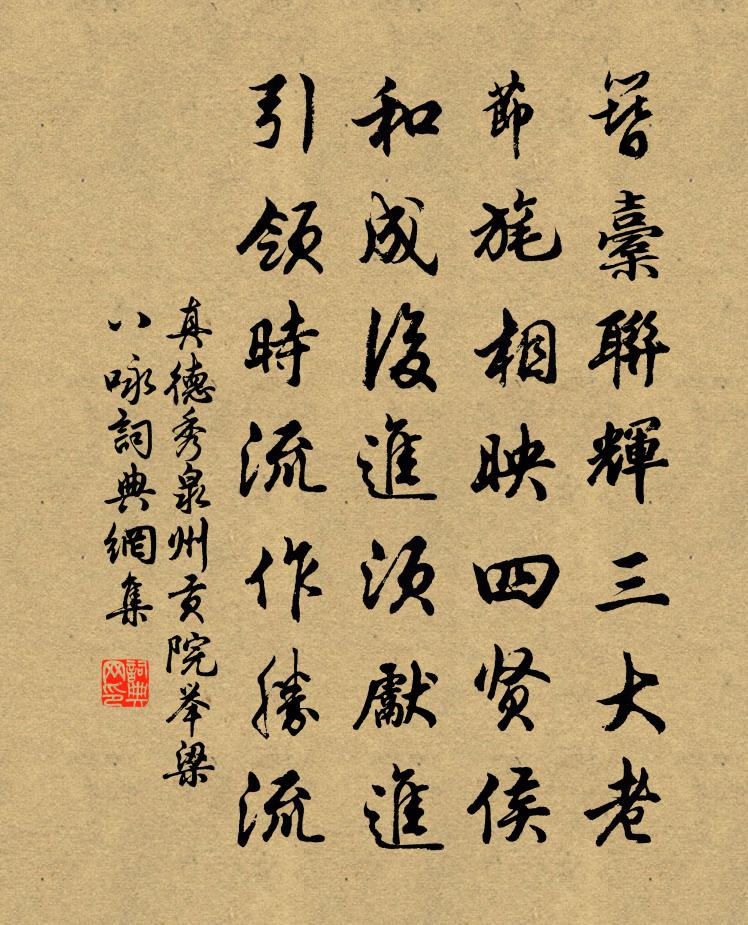 簪橐聯輝三大老
節旄相映四贤侯
和成後進須獻進
引領時流作勝流
真德秀泉州贡院举梁
八咏詞典網集
詞典
网印